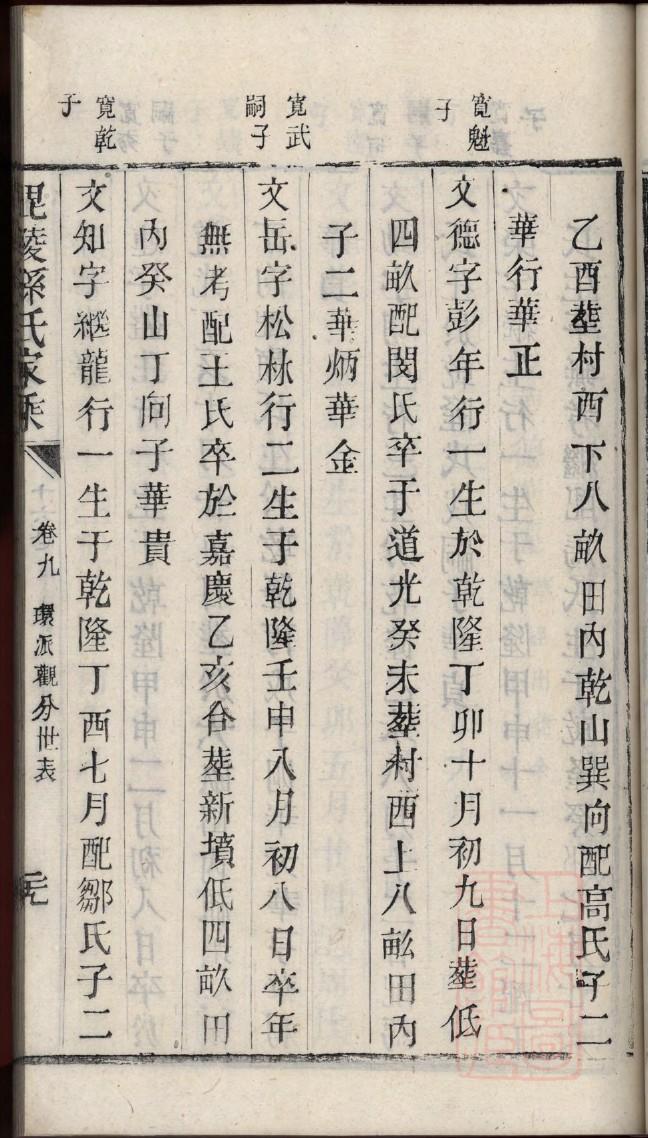 乙酉塟村西下八畝田內乾山巽向配高氏子二
華行華正
寬魁
子
文德字彭年行一生於乾隆丁卯十月初九日塟低
四畝配閔氏卒于道光癸未塟村西上八畝田內
子二華炳華金
寬武
嗣子
文岳字松林行二生于乾隆壬申八月初八日卒年
無考配王氏卒於嘉慶乙亥合塟新墳低四畝田
內癸山丁向子華貴
寬乾
子
文知字繼龍行一生于乾隆丁酉七月配鄒氏子二
毘陵孫氏家乘
卷九
環派觀分世表